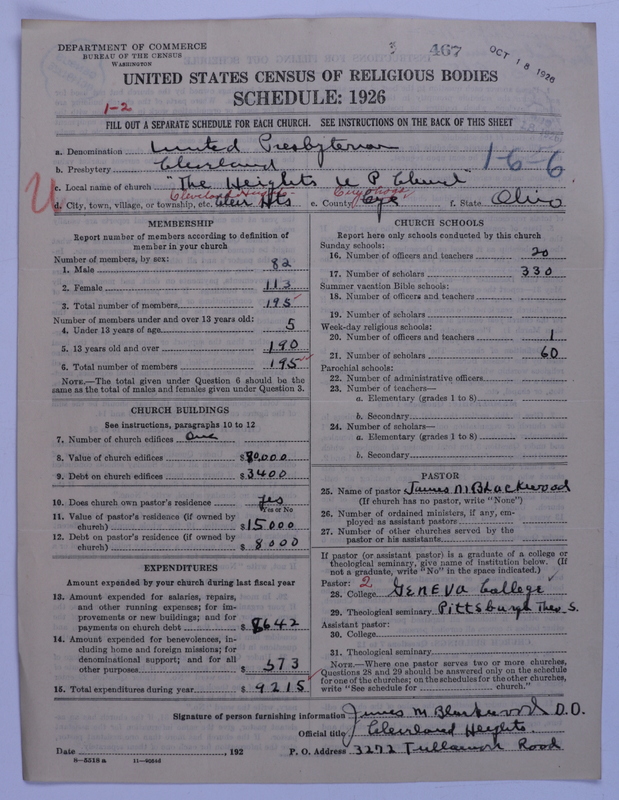 DEPARTMENT OF COMMERCE
BUREAU OF THE CENSUS
WASHINGTON
467
OCT 18 1926
UNITED STATES CENSUS OF RELIGIOUS BODIES
1-2
SCHEDULE: 1926
FILL OUT A SEPARATE SCHEDULE FOR EACH CHURCH. SEE INSTRUCTIONS ON THE BACK OF THIS SHEET
a. Denomination United Presbyterian
b. Presbytery Cleveland
1-6-6
c. Local name of church "The Heights U P Church"
U
Cleveland Heights Cuyahoga
d. City, town, village, or township, etc. Clev Hts e. County Cye f. State Ohio
MEMBERSHIP
Report number of members according to definition of member in your church
Number of members, by sex:
1. Male 82
2. Female 113
3. Total number of members 195
Number of members under and over 13 years old:
4. Under 13 years of age 5
5. 13 years old and over 190
6. Total number of members 195
NOTE.—The total given under Question 6 should be the same as the total of males and females given under Question 3.
CHURCH BUILDINGS
See instructions, paragraphs 10 to 12
7. Number of church edifices One
8. Value of church edifices $80,000
9. Debt on church edifices $3400
10. Does church own pastor's residence yes
Yes or No
11. Value of pastor's residence (if owned by church) $15000
12. Debt on pastor's residence (if owned by church) $8000
EXPENDITURES
Amount expended by your church during last fiscal year
13. Amount expended for salaries, repairs, and other running expenses; for improvements or new buildings; and for payments on church debt $8642
14. Amount expended for benevolences, including home and foreign missions; for denominational support; and for all other purposes $573
15. Total expenditures during year $9215
CHURCH SCHOOLS
Report here only schools conducted by this church
Sunday schools:
16. Number of officers and teachers 20
17. Number of scholars 330
Summer vacation Bible schools:
18. Number of officers and teachers
19. Number of scholars
Week-day religious schools:
20. Number of officers and teachers 1
21. Number of scholars 60
Parochial schools:
22. Number of administrative officers
23. Number of teachers—
a. Elementary (grades 1 to 8)
b. Secondary
24. Number of scholars—
a. Elementary (grades 1 to 8)
b. Secondary
PASTOR
25. Name of pastor James M Blackwood
(If church has no pastor, write "None")
26. Number of ordained ministers, if any, employed as assistant pastors
27. Number of other churches served by the pastor or his assistants
If pastor (or assistant pastor) is a graduate of a college or theological seminary, give name of institution below. (If not a graduate, write "No" in the space indicated.)
Pastor: 2
28. College GENEVA College
29. Theological seminary Pittsburgh Theo. S.
Assistant pastor:
30. College
31. Theological seminary
NOTE.—Where one pastor serves two or more churches, Questions 28 and 29 should be answered only on the schedule for one of the churches; on the schedules for the other churches, write "See schedule for church."
Signature of person furnishing information James M Blackwood D.D.
Official title Cleveland Heights.
Date , 192 P. O. Address 3272 Tullamore Road
8-5518 a